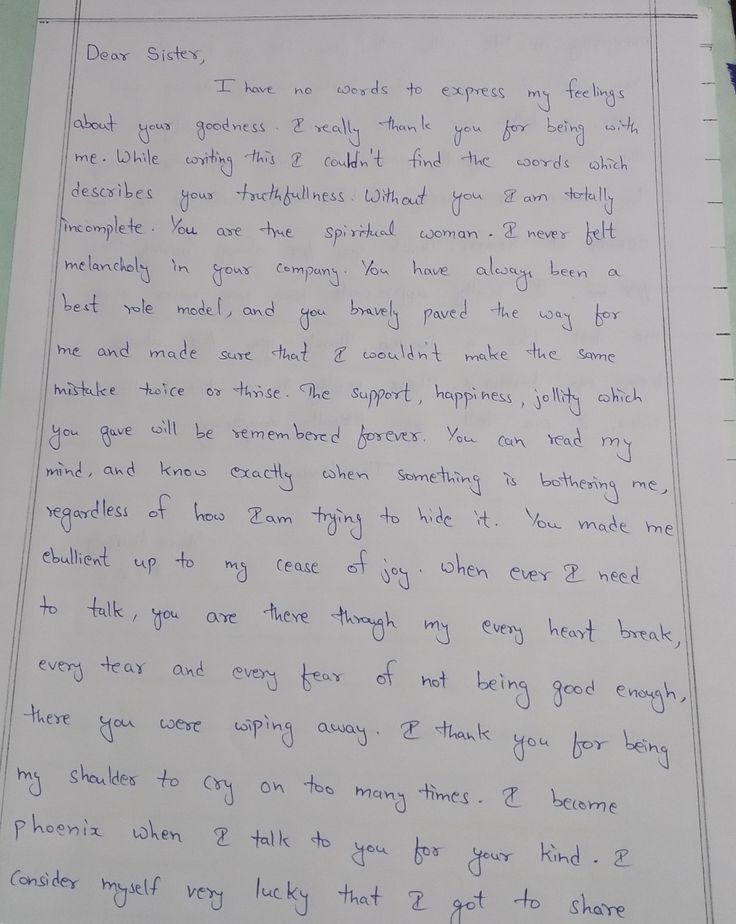 Dear Sister,
I have no words to express my feelings
about your goodness. I really thank you for being with
me. While writing this I couldn't find the words which
describes your truthfullness. Without you I am totally
incomplete. You are true spiritual woman. I never felt
melancholy in your company. You have always been a
best role model, and you bravely paved the way for
me and made sure that I wouldn't make the same
mistake twice or thrise. The support, happiness, jollity which
you gave will be remembered forever. You can read my
mind, and know exactly when something is bothering me,
regardless of how I am trying to hide it. You made me
ebullient up to my cease of joy. When ever I need
to talk, you are there through my every heart break,
every tear and every fear of not being good enough,
there you were wiping away. I thank you for being
my shoulder to cry on too many times. I become
phoenix when I talk to you for your kind. I
consider myself very lucky that I got to share